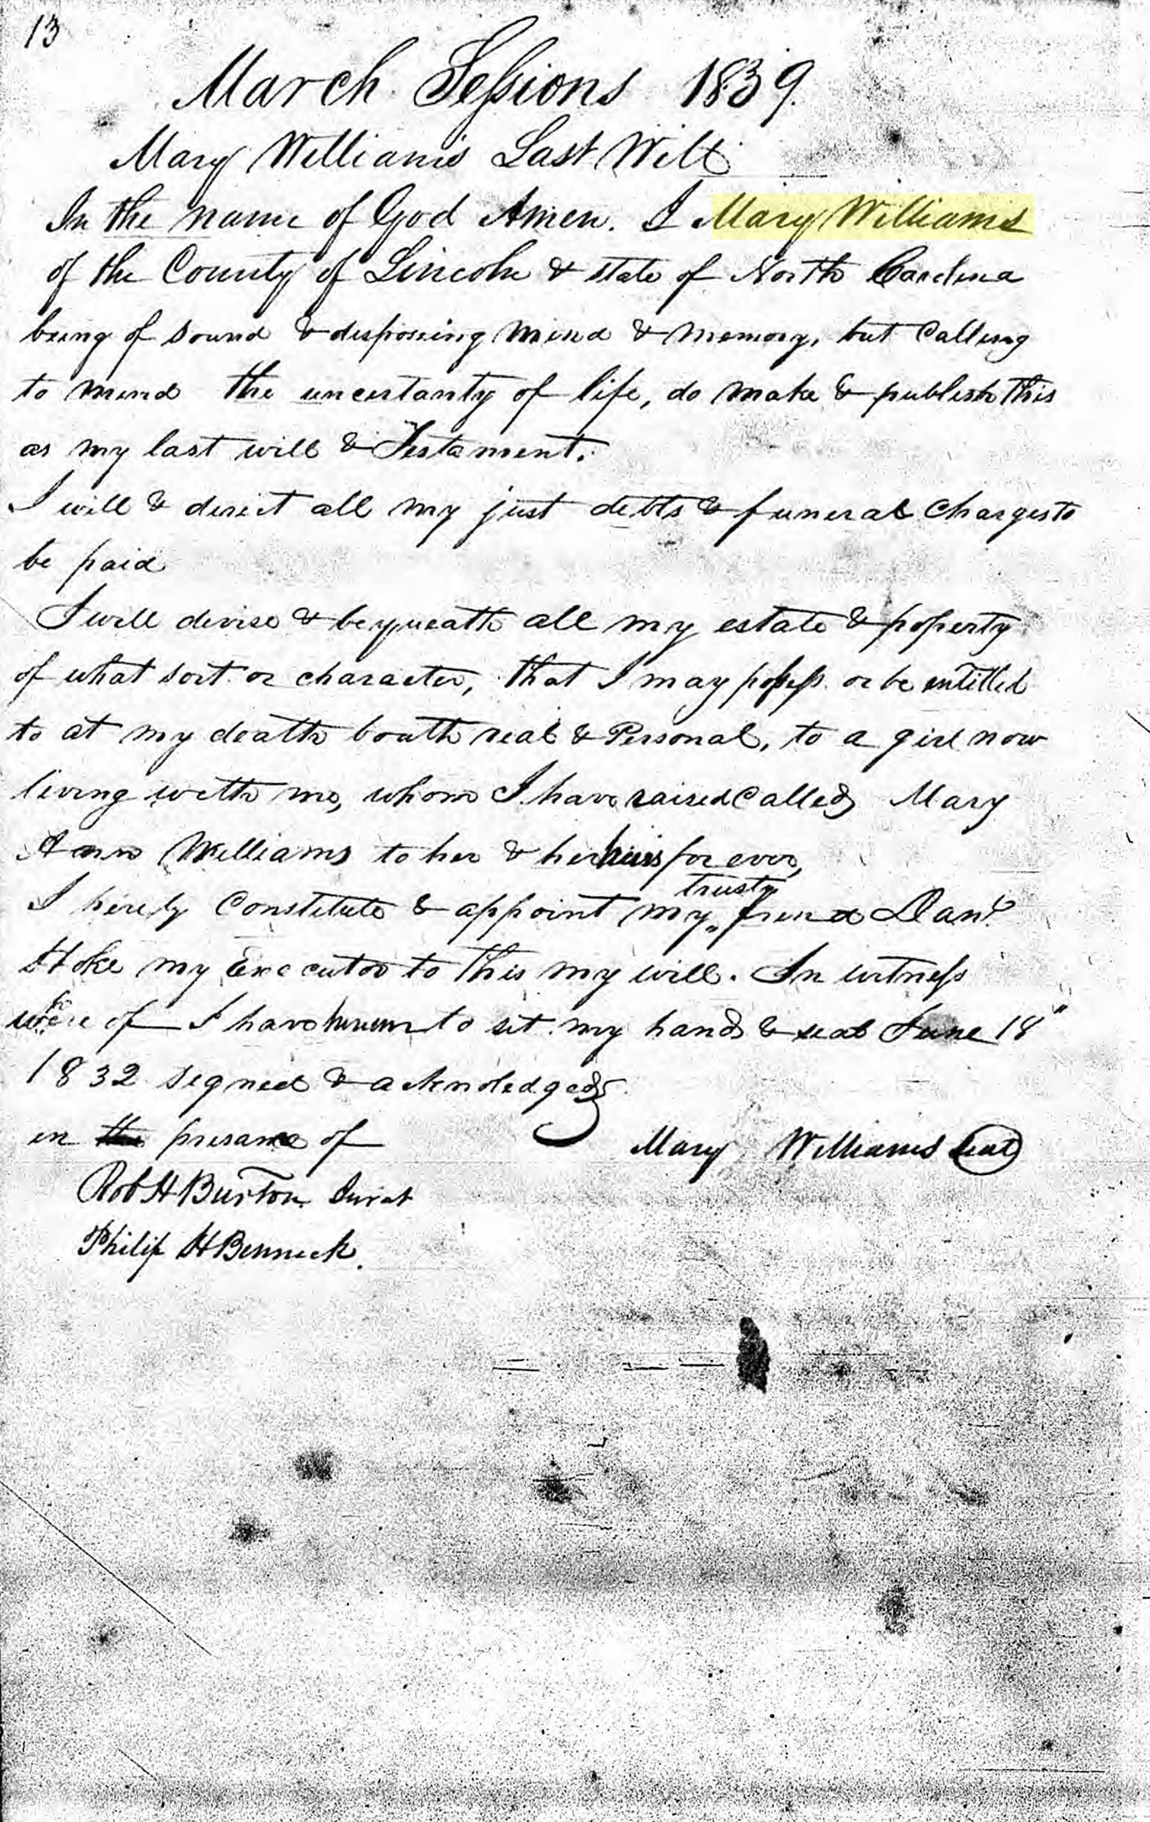 13
March Sessions 1839.
Mary William's Last Will
In the name of God Amen. I Mary Williams
of the County of Lincoln & state of North Carolina
being of sound & disposing mind & memory, but calling
to mind the uncertanty of life, do make & publish this
as my last will & Testament.
I will & direct all my just debts & funeral charges to
be paid
I will devise & bequeath all my estate & poperty
of what sort or character, that I may posess or be intitled
to at my death bouth real & Personal, to a girl now
living with me, whom I have raised called Mary
Ann Williams to her & her heirs for ever,
trusty
I hereby Constitute & appoint my friend Danl
Hoke my Executor to this my will. In witness
where of I have to set my hand & seal June 18"
1832 signed & acknoledged
in the presance of Mary Williams seal
Rob H Burton Jurat
Philip H